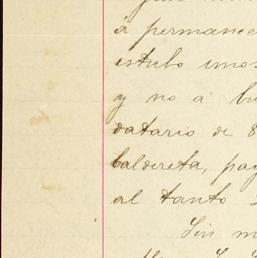 á permanec
estubo unos
y no á bu
datario de 8
Caldereta, pag
al tanto
Sin m